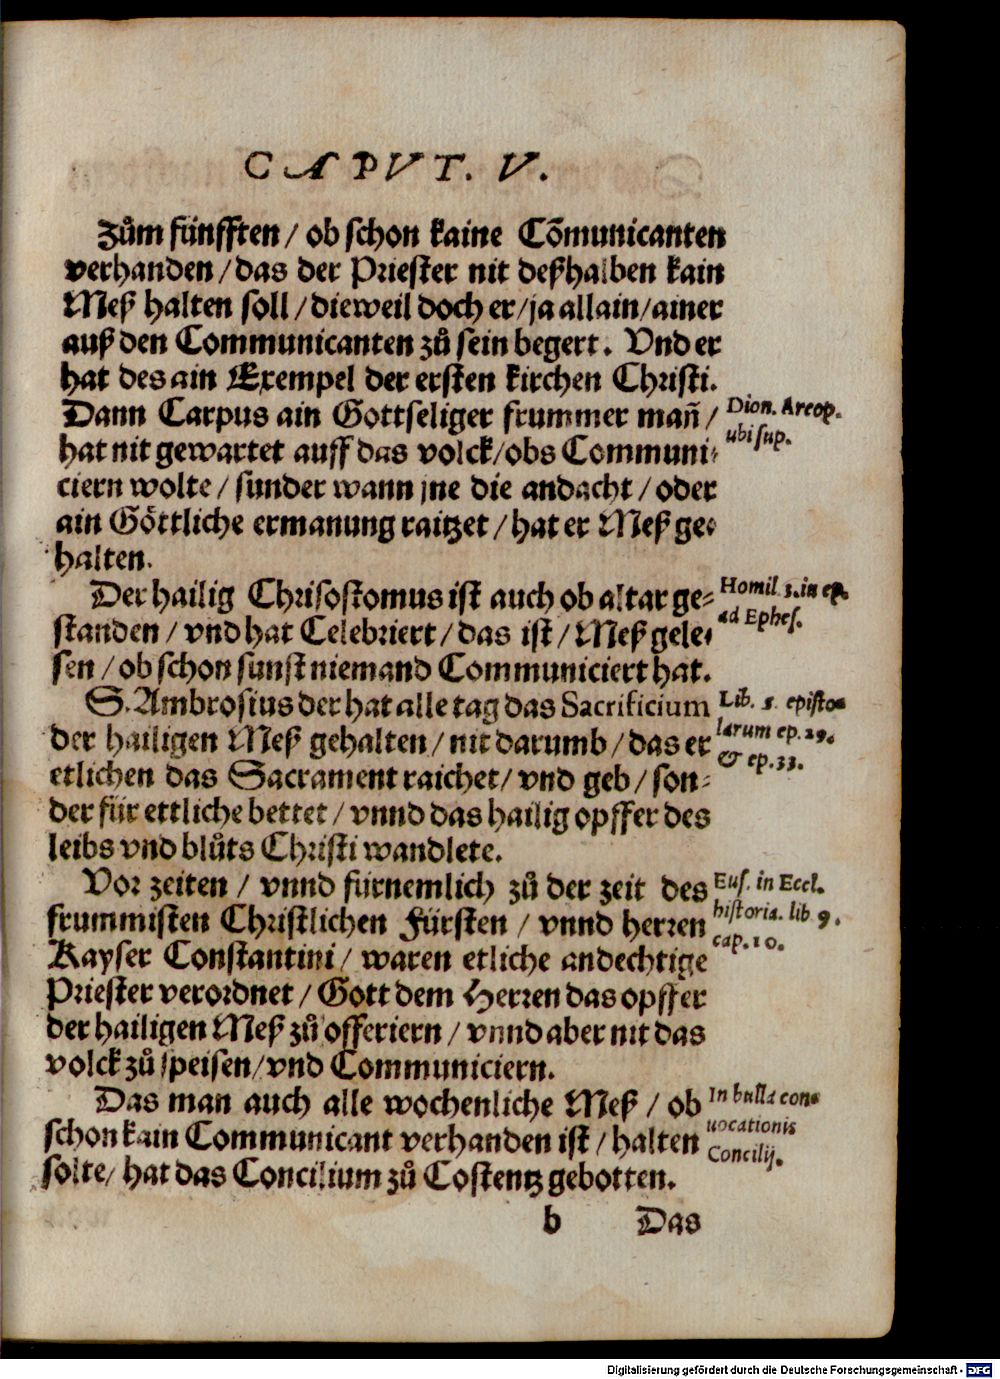 CAPVT. V.
Zům fünfften / ob schon kaine Cõmunicanten
verhanden / das der Priester nit deßhalben kain
Meß halten soll / dieweil doch er / ja allain / ainer
auß den Communicanten zů sein begert. Vnd er
hat des ain Exempel der ersten kirchen Christi.
Dann Carpus ain Gottseliger frummer mañ /
Dion. Areop.
ubi sup.
hat nit gewartet auff das volck / obs Communi-
ciern wolte / sunder wann jne die andacht / oder
ain Göttliche ermanung raitzet / hat er Meß ge-
halten.
Der hailig Chrisostomus ist auch ob altar ge-
Homil. 3. in ep.
ad Ephes.
standen / vnd hat Celebriert / das ist / Meß gele-
sen / ob schon sunst niemand Communiciert hat.
S. Ambrosius der hat alle tag das Sacrificium
Lib. 5. episto-
larum ep. 29.
& ep. 33.
der hailigen Meß gehalten / nit darumb / das er
etlichen das Sacrament raichet / vnd geb / son-
der für ettliche bettet / vnnd das hailig opffer des
leibs vnd blůts Christi wandlete.
Vor zeiten / vnnd fürnemlich zů der zeit des
Eus. in Eccl.
historia. lib 9.
cap. 10.
frummisten Christlichen Fürsten / vnnd herren
Kayser Constantini / waren etliche andechtige
Priester verordnet / Gott dem Herren das opffer
der hailigen Meß zů offeriern / vnnd aber nit das
volck zů speisen / vnd Communiciern.
Das man auch alle wochenliche Meß / ob
In bulla con-
uocationis
Concilij.
schon kain Communicant verhanden ist / halten
solte / hat das Concilium zů Costentz gebotten.
b Das
Digitalisierung gefördert durch die Deutsche Forschungsgemeinschaft - DFG